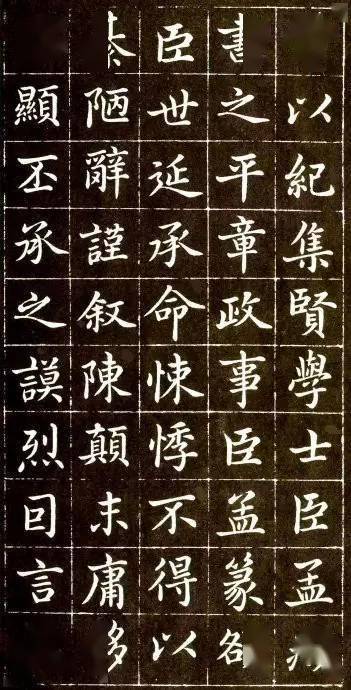 以紀集賢學士臣孟
書之平章政事臣孟篆
臣世延承命悚悸不得以
陋辭謹叙陳顛末庸
顯丕承之謨烈回言